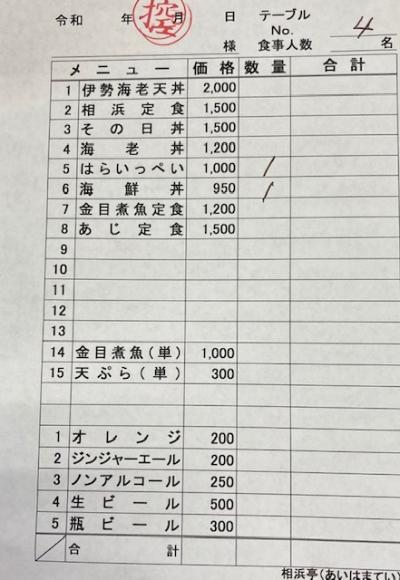 令和 年 月 日 テーブル
控
No. 4
様 食事人数 名
メニュー 価格 数量 合計
1 伊勢海老天丼 2,000
2 相浜定食 1,500
3 その日丼 1,500
4 海老丼 1,200
5 はらいっぺい 1,000 /
6 海鮮丼 950 /
7 金目煮魚定食 1,200
8 あじ定食 1,500
9
10
11
12
13
14 金目煮魚(単) 1,000
15 天ぷら(単) 300
1 オレンジ 200
2 ジンジャーエール 200
3 ノンアルコール 250
4 生ビール 500
5 瓶ビール 300
合計
相浜亭(あいはまてい)